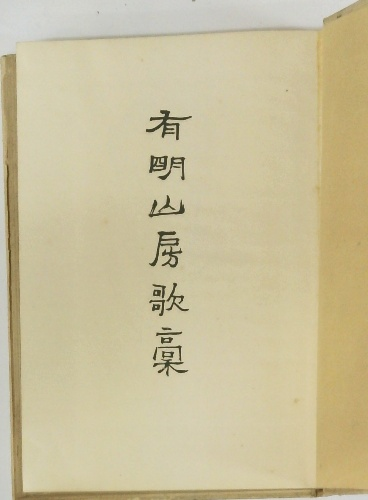 有明山房歌稾